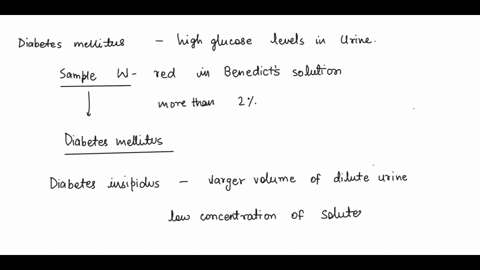 Diabetes mellitus - high glucose levels in Urine.
Sample W - red in Benedict's solution
more than 2%.
Diabetes mellitus
Diabetes insipidus - larger volume of dilute urine
low concentration of solutes